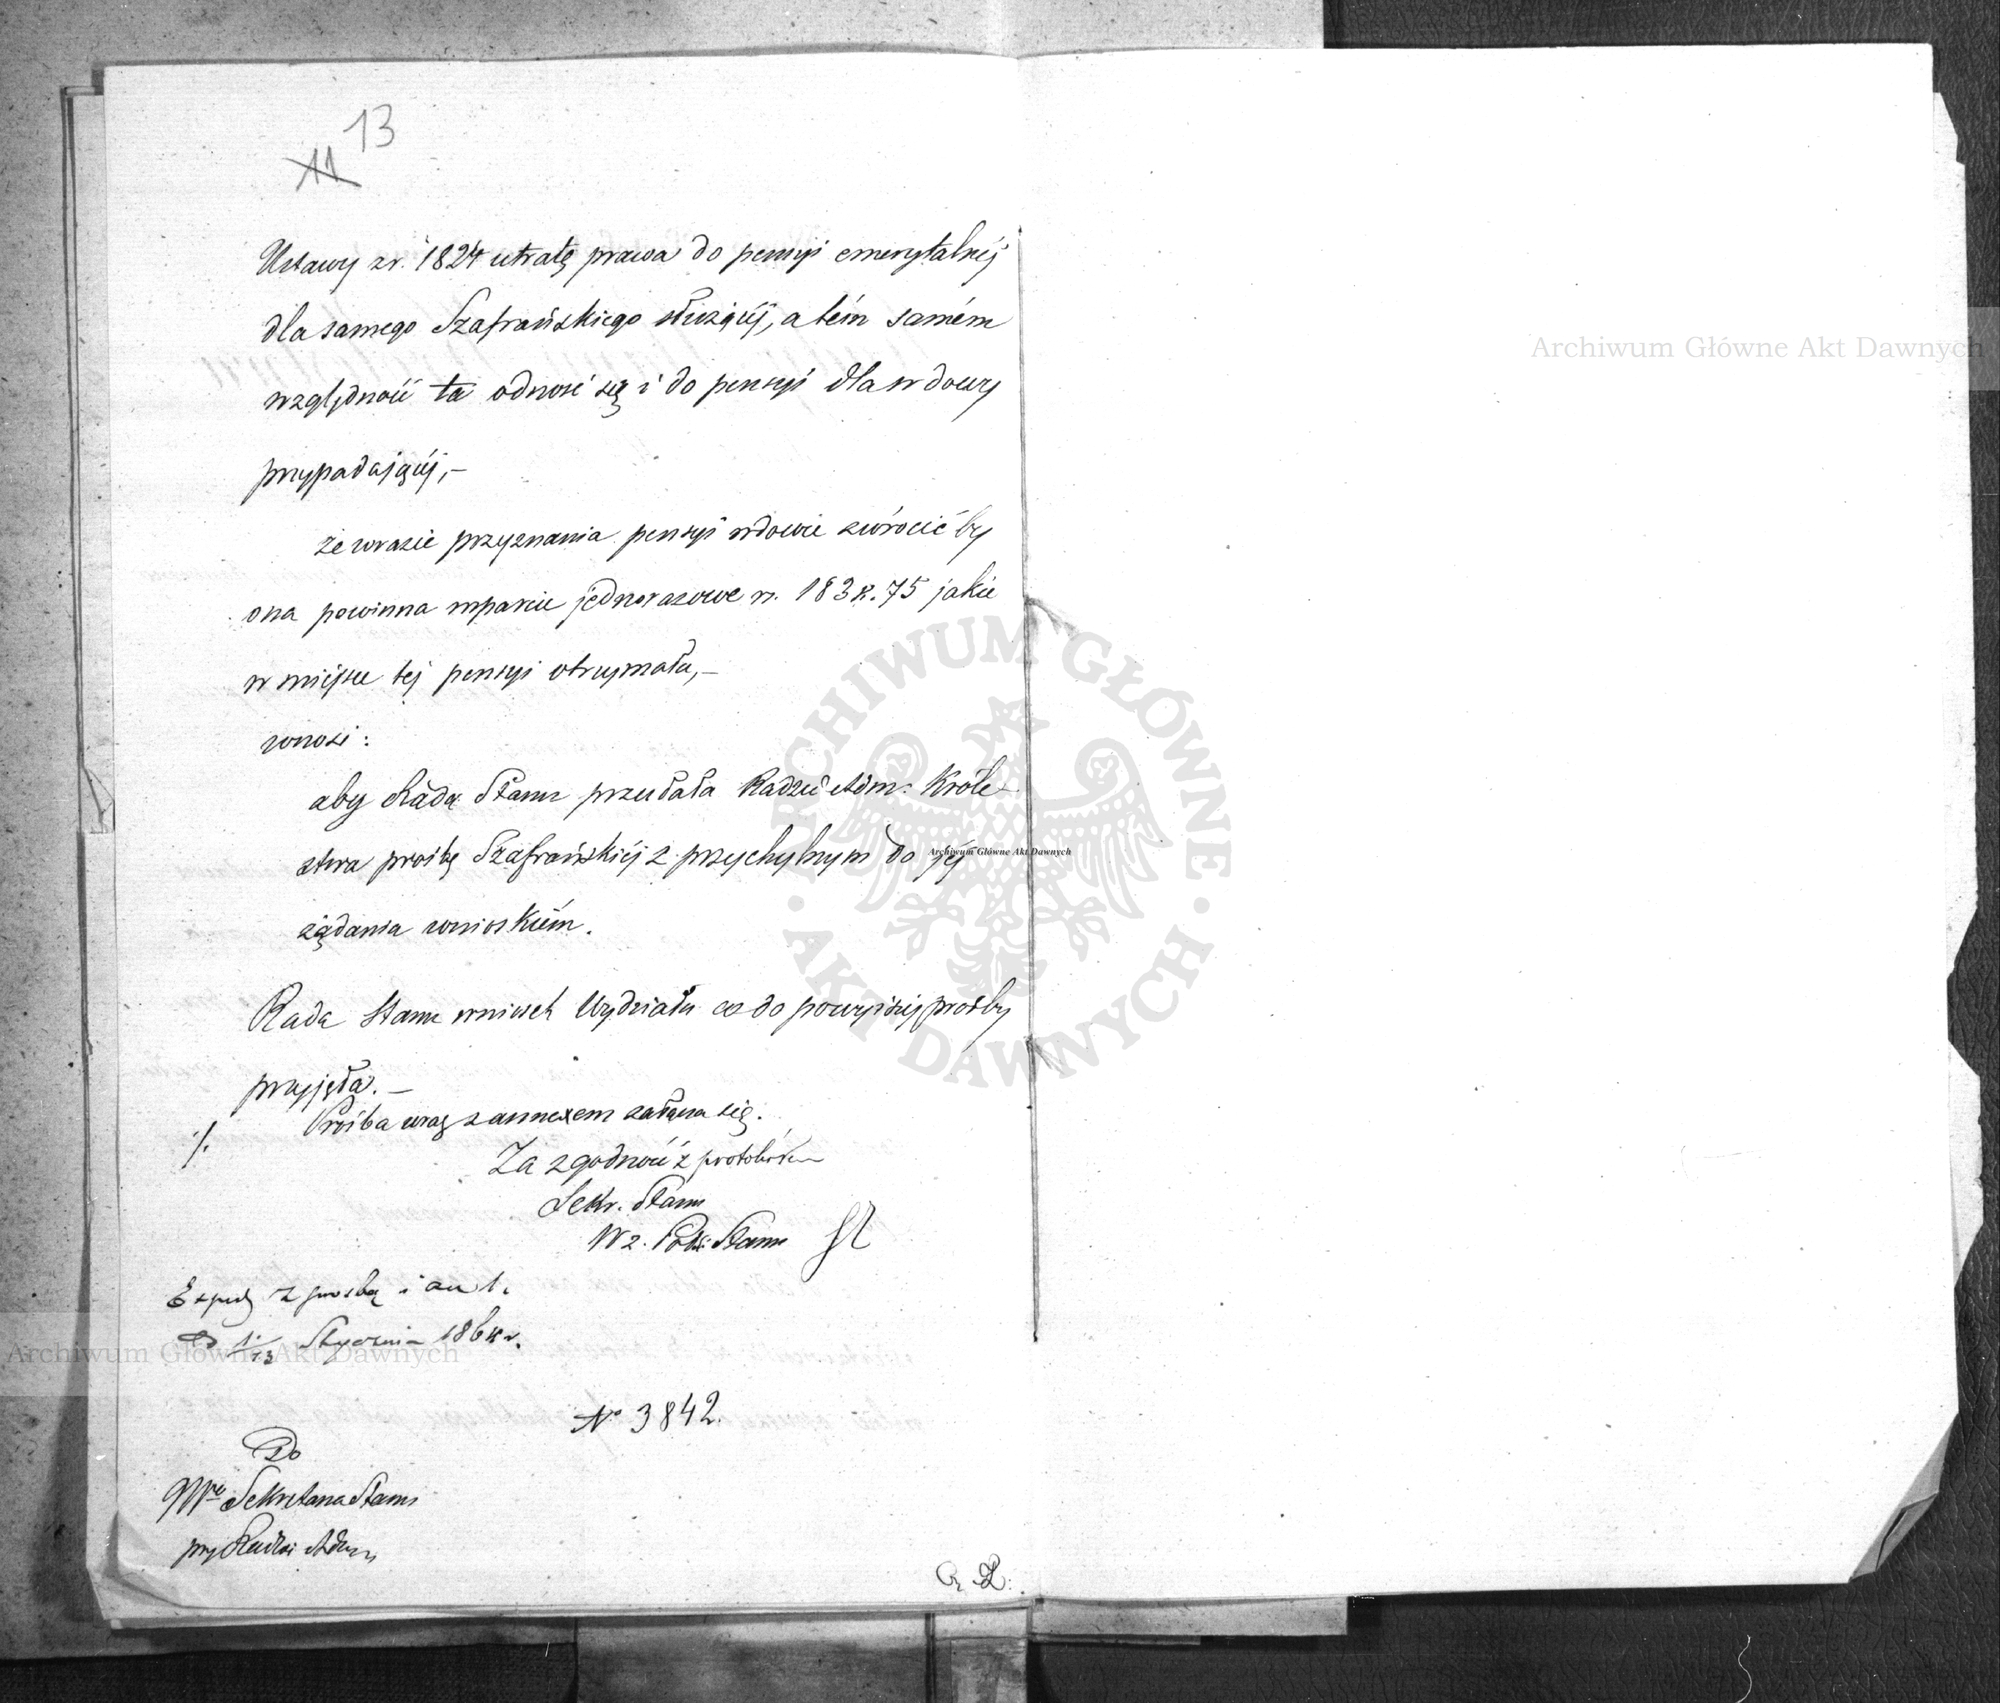 13
11
Ustawy z r. 1824 utratę prawa do pensyi emerytalnéj
dla samego Szafrańskiego służącéj, a tém samém
względność ta odnosi się i do pensyi dla wdowy
przypadającéj,—
że w razie przyznania pensyi wdowie zwrócić by
ona powinna wparcie jednorazowe r. 183 k. 75 jakie
w miejsce téj pensyi otrzymała,—
wnosi:
aby Rada Stanu przesłała Radzie Adm: Króle-
stwa prośbę Szafrańskiéj z przychylnym do jéj
żądania wnioskiém.
Rada Stanu wniosek Wydziału co do powyższéj prośby
przyjęła.—
./. Prośba wraz z annexem załącza się.
Za zgodność z protokółem
Sekr. Stanu
Wz. Stanu
Exped z prosbą i an 1.
1/13 Stycznia 186 r.
No 3842.
Do
JWgo Sekretarza Stanu
przy Radzie Adm
Archiwum Główne Akt Dawnych
Archiwum Główne Akt Dawnych
Archiwum Główne Akt Dawnych
ARCHIWUM GŁÓWNE
AKT DAWNYCH